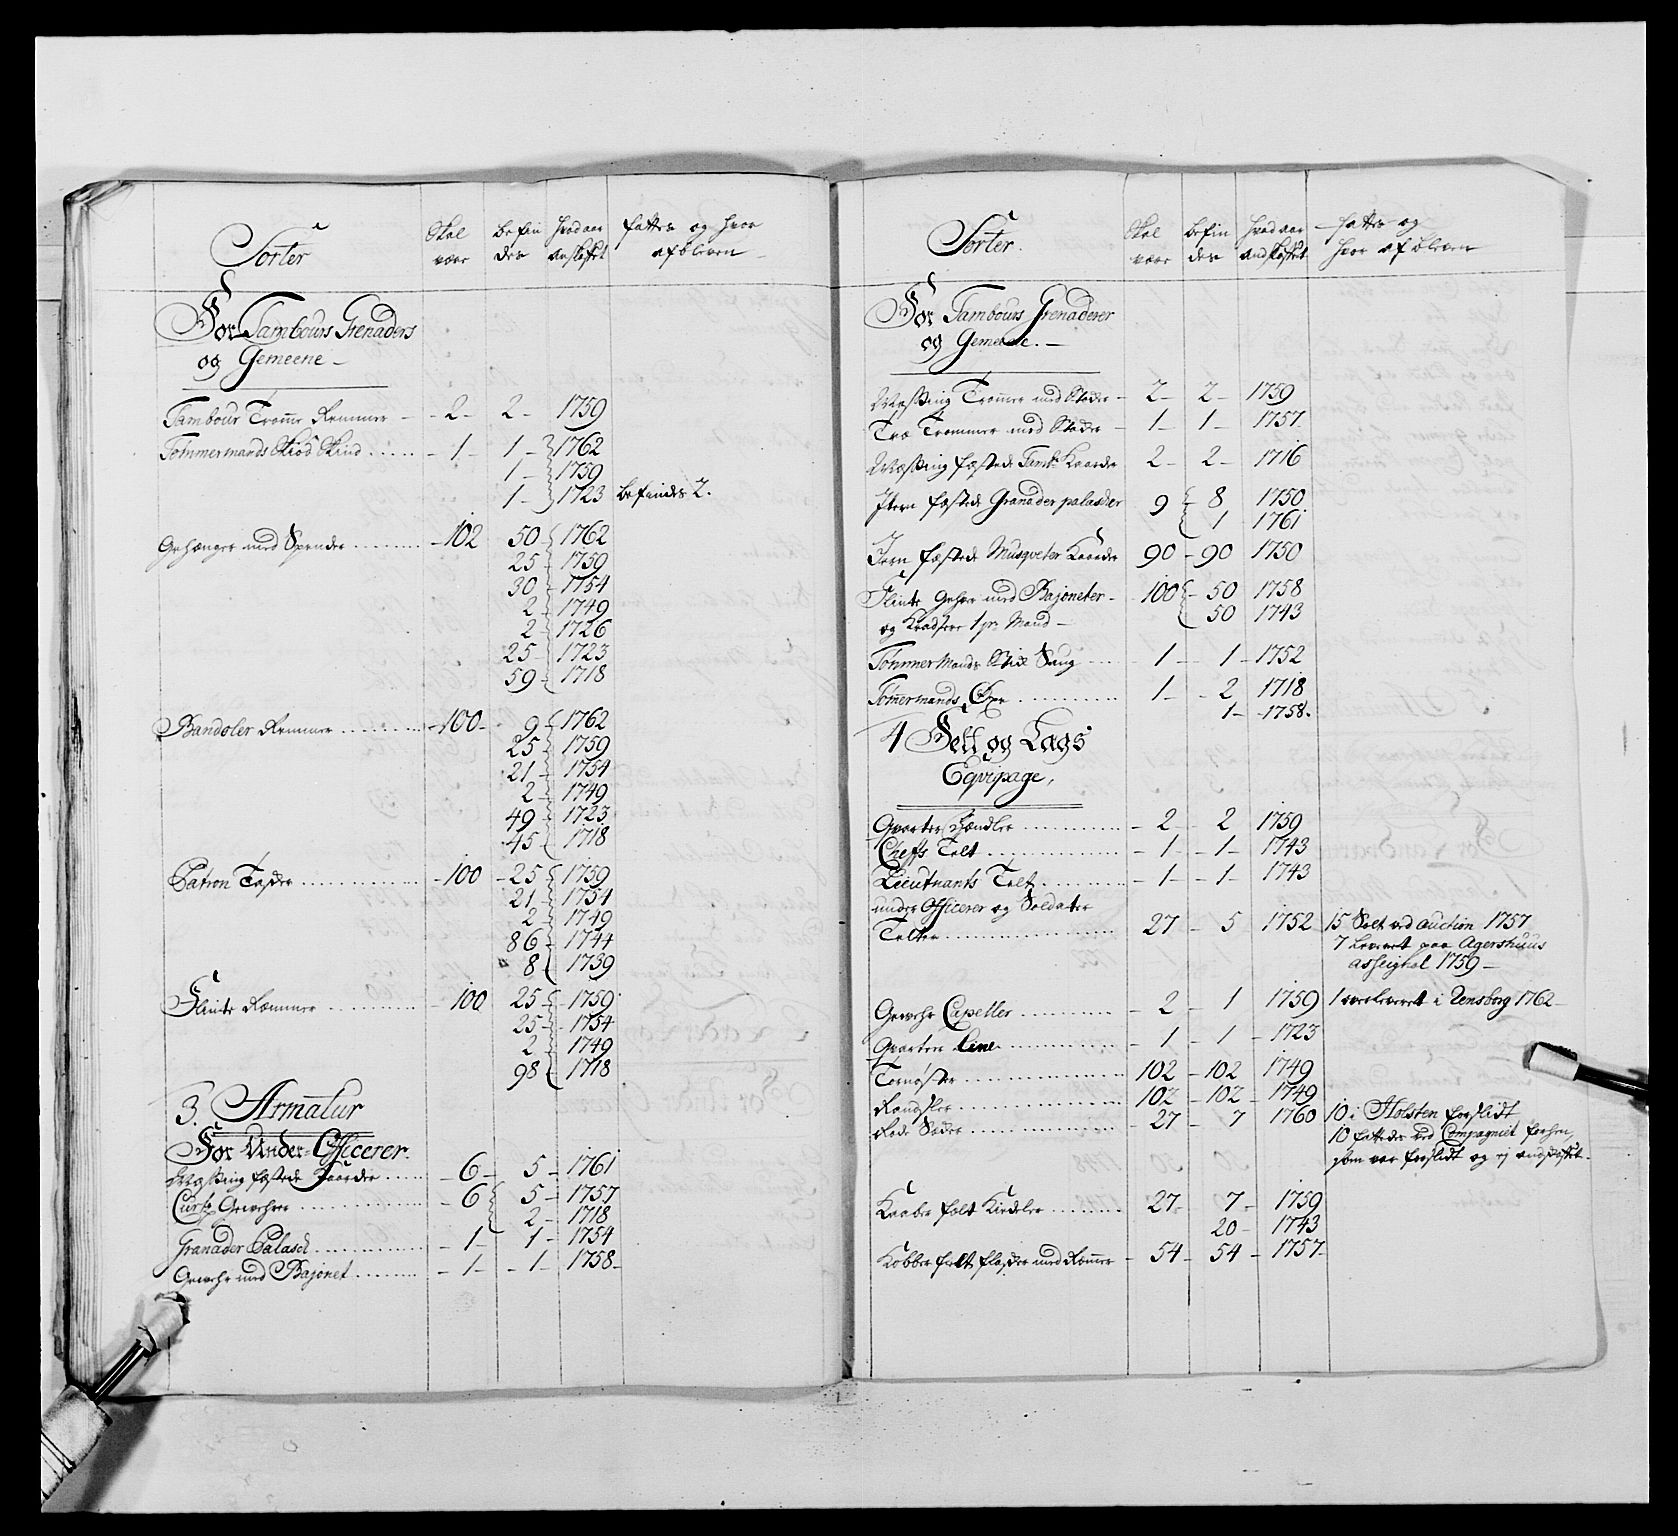 Sorter
Skal være
befin des
hvad aar anskaffet
fattes og hvor afbleven
For Tambours Grenaders
og Gemeene
Tambour Tromme Remmer - 2 - 2 - 1759
Tømmermands Skiød Skind - 1 - 1 - 1762
1 - 1759
1 - 1723 befindes 2.
Gehænger med Spender - 102 50 - 1762
25 - 1759
30 - 1754
2 - 1749
2 - 1726
25 - 1723
59 - 1718
Bandoler Remmer - 100 - 9 - 1762
25 - 1759
21 - 1754
2 - 1749
49 - 1723
45 - 1718
Patron Tasker - 100 - 25 - 1759
21 - 1754
2 - 1749
86 - 1744
8 - 1739
Flinte Remmer - 100 25 - 1759
25 - 1754
2 - 1749
98 - 1718
3. Armatur
For Under-Officerer
Messing fæstede Kaarder - 6 - 5 - 1761
Gewehrer - 6 5 - 1757
2 - 1718
Granader Palasch - 1 - 1 - 1754
Gewehr med Bajonet - 1 - 1 - 1758
Sorter.
Skal være
befin des
hvad aar andskaffet
fattes og
hvor afbleven
For Tambours Grenaderer
og Gemeene. -
Messing Trommer med Stokker - 2 - 2 - 1759
Træ Trommer med Stokker - 1 - 1 - 1757
Messing fæstede Tamb. Kaarder 2 - 2 - 1716
Item fæstede Granader palasker 9 - 8 1750
1 1761
Jern fæstede Musqveter Kaarder 90 - 90 1750
Flinte Gehær med Bajoneter - 100 - 50 1758
og Kradsere 1 pr. Mand - 50 1743
Tømmermands Stik Saug - 1 - 1 - 1752
Tømmermands Øxe - 1 - 2 1718
1 - 1758.
4 Felt og Lags
Eqvipage,
Qvarteer - 2 - 2 1759
Cheffs Telt - 1 - 1 - 1743
Lieutnants Telt - 1 - 1 - 1743
under Officerer og Soldater
Telter - 27 - 5 1752 15 Solt ved auction 1757
7 Leveret paa Agershuus
1759 -
Gewehr Capeller - 2 - 1 1759 1 overleveret i Rensborg 1762
Qvarteer Line - 1 - 1 - 1723
Tornøster - 102 - 102 1749
Rantzler - 102 - 102 - 1749
- 27 - 7 1760 10 i Holsten forslidt
10 fattedes ved Compagniet forhen,
som var forslidt og ej andskaffet.
Kaaber felt Kiedeler - 27 - 7 - 1759
20 - 1743
Kobber felt flasker med Remmer - 54 - 54 - 1757